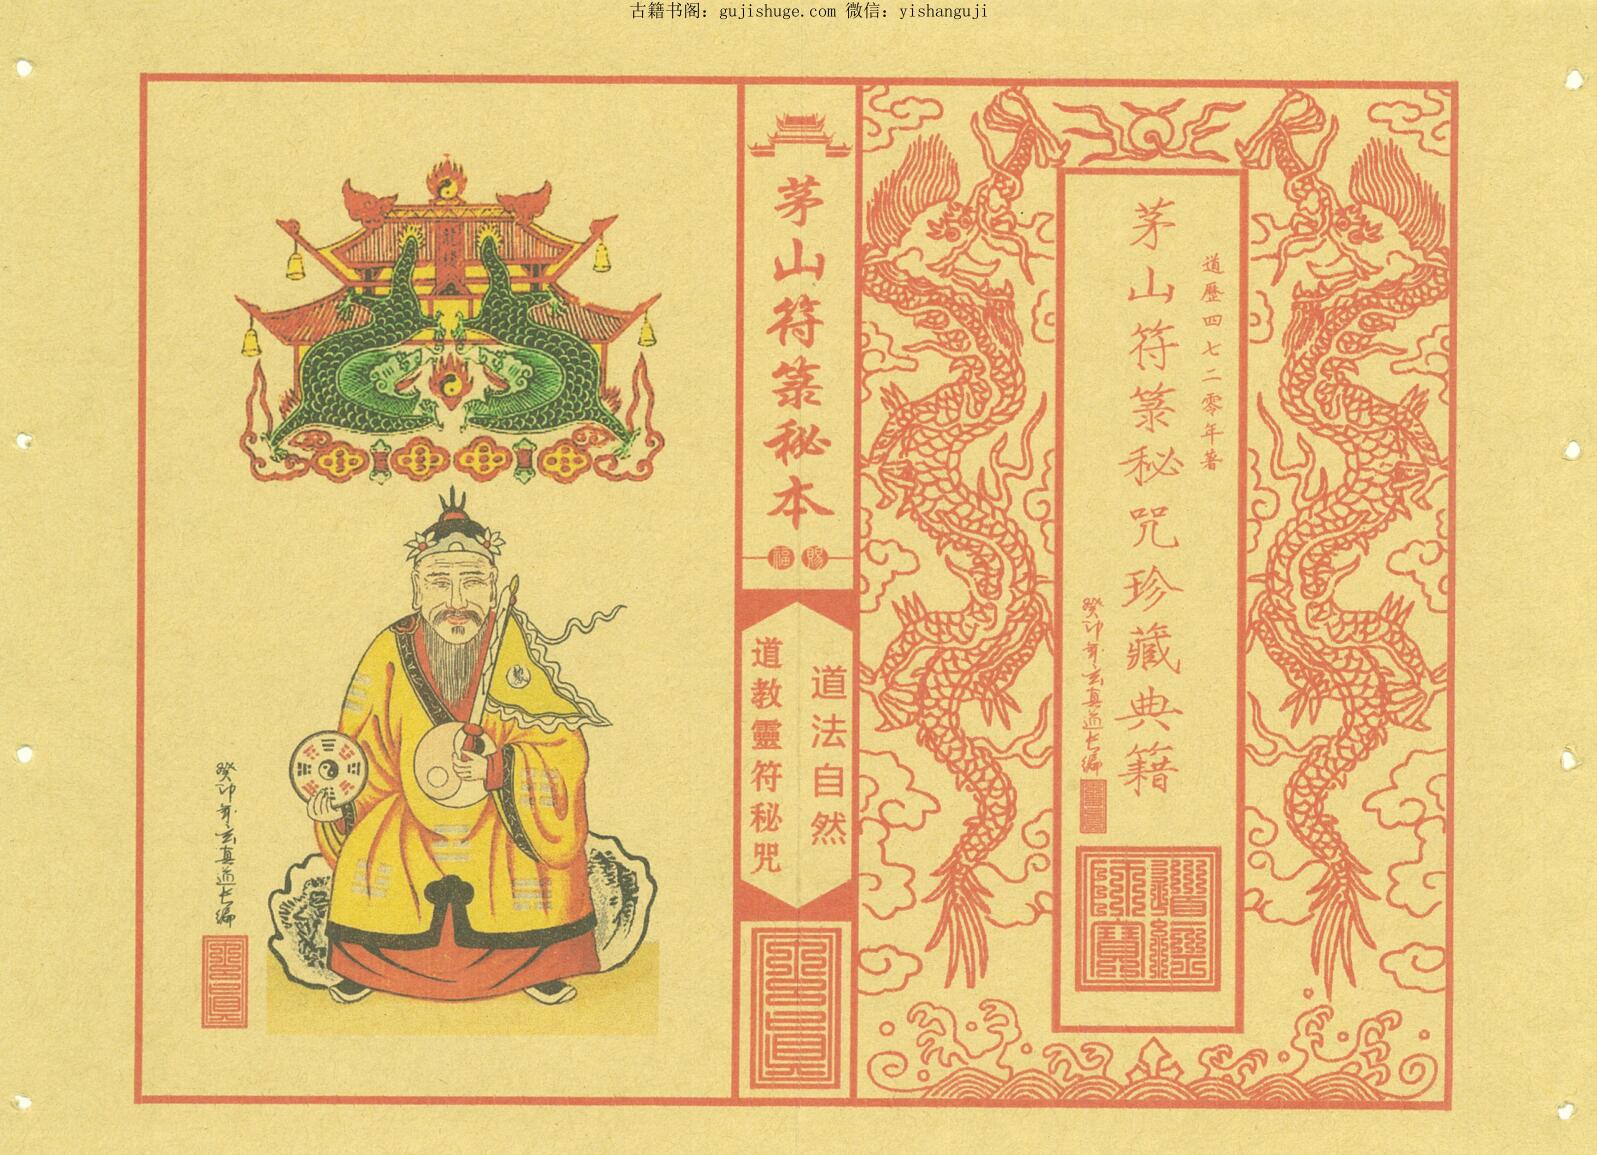 古籍书阁：gujishuge.com 微信：yishanguji
道歷四七二零年著
茅山符箓秘咒珍藏典籍
癸卯年玄真道长編
道經師寶
茅山符箓秘本
賜福
道法自然
道教靈符秘咒
癸卯年玄真道长編